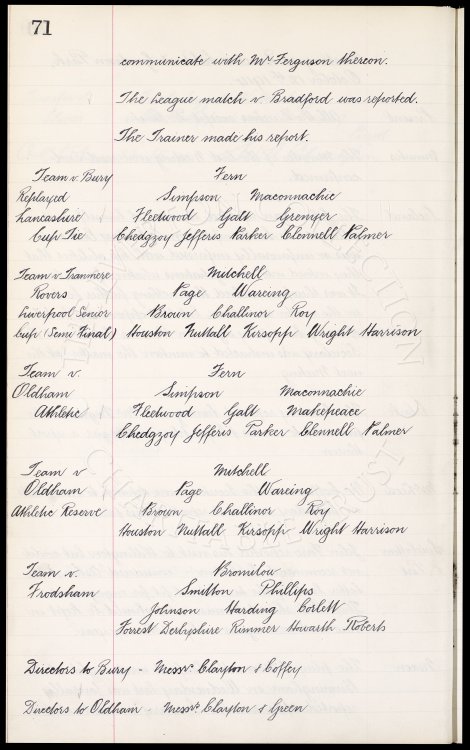 71
communicate with Mr Ferguson thereon.
The League match v. Bradford was reported.
The Trainer made his report.
Team v. Bury Fern
Replayed Simpson Maconnachie
Lancashire Fleetwood Galt Grenyer
Cup Tie Chedgzoy Jefferis Parker Clennell Palmer
Team v. Tranmere Mitchell
Rovers Page Wareing
Liverpool Senior Brown Challinor Roy
Cup (Semi Final) Houston Nuttall Kirsopp Wright Harrison
Team v. Fern
Oldham Simpson Maconnachie
Athletic Fleetwood Galt Makepeace
Chedgzoy Jefferis Parker Clennell Palmer
Team v Mitchell
Oldham Page Wareing
Athletic Reserve Brown Challinor Roy
Houston Nuttall Kirsopp Wright Harrison
Team v. Bromilow
Frodsham Smitton Phillips
Johnson Harding Corlett
Forrest Derbyshire Rimmer Howarth Roberts
Directors to Bury - Messrs Clayton & Coffey
Directors to Oldham - Messrs Clayton & Green